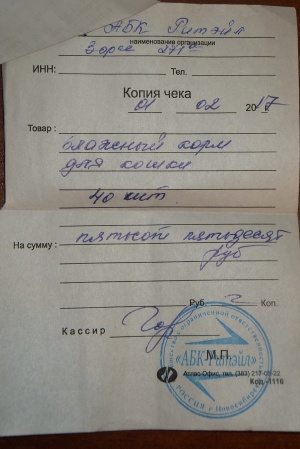 АБК Ритэйл
наименование организации
Зорге 271
ИНН: Тел.
Копия чека
01 02 2017
Товар :
влажный корм
для кошки
40 шт.
На сумму : пятьсот пятьдесят
руб
Руб. Коп.
Кассир
М.П.
«АБК-Ритэйл»
Атлас-Офис, тел. (383) 217-03-22
Код -1116
РОССИЯ г Новосибирск